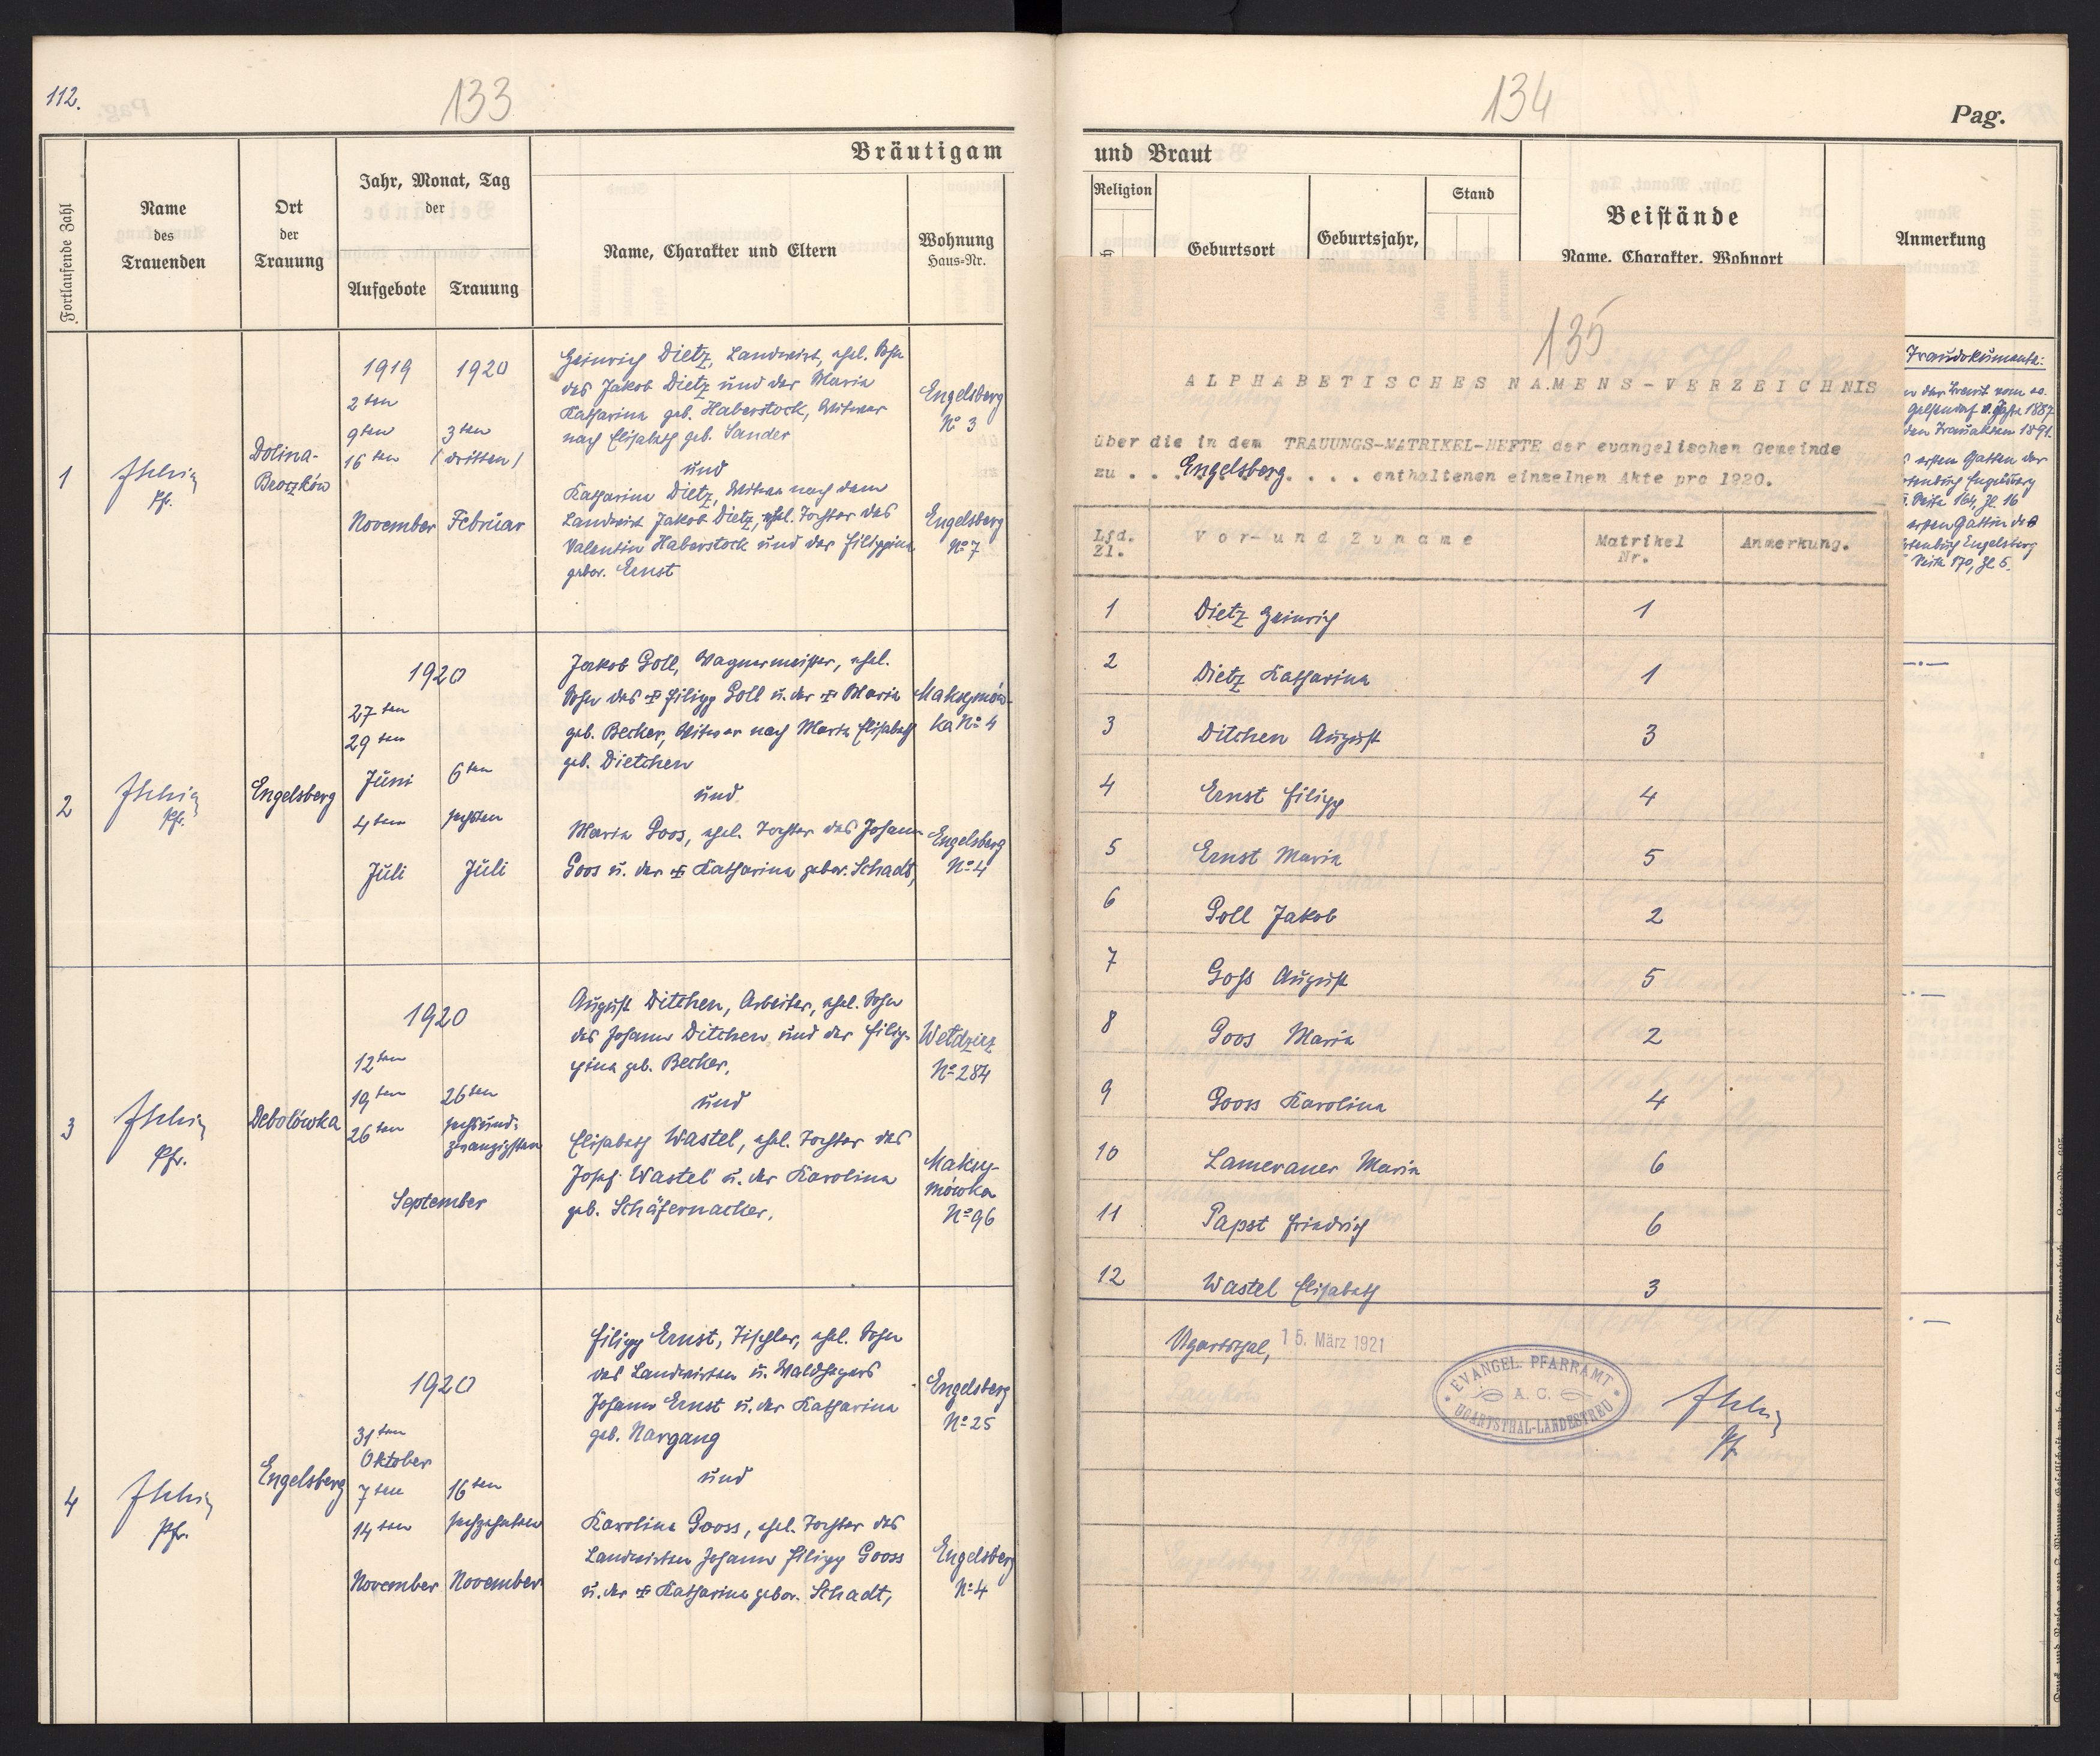 112.
133
Bräutigam
Fortlaufende Zahl
Name
des
Trauenden
Ort
der
Trauung
Jahr, Monat, Tag
der
Aufgebote
Trauung
Name, Charakter und Eltern
Wohnung
Haus-Nr.
1
Pfr.
Dolina-
Broczków
1919
2ten
9ten
16ten
November
1920
3ten
/dritten/
Februar
Heinrich Dietz, Landwirt, ehel. Sohn
des Jakob Dietz und der Maria
Katharina geb. Haberstock, Witwer
nach Elisabeth geb. Sander
und
Katharina Dietz, Witwe nach dem
Landwirt Jakob Dietz, ehel. Tochter des
Valentin Haberstock und der Filippina
gebor. Ernst
Engelsberg
No 3
Engelsberg
No 7
2
Pfr.
Engelsberg
1920
27ten
29ten
Juni
4ten
Juli
6ten
sechsten
Juli
Jakob Goll, Wagnermeister, ehel.
Sohn des Filipp Goll u. der Maria
geb. Becher, Witwer nach Maria Elisabeth
geb. Dietchen
und
Maria Goos, ehel. Tochter des Johann
Goos u. der Katharina gebor. Schadt,
Maksymów-
ka No 4
Engelsberg
No 4
3
Pfr.
Debolówka
1920
12ten
19ten
26ten
26ten
sechsund-
zwanzigsten
September
August Ditchen, Arbeiter, ehel. Sohn
des Johann Ditchen und der Filip-
pina geb. Becher,
und
Elisabeth Wastel, ehel. Tochter des
Josef Wastel u. der Karolina
geb. Schäfernacker,
Wełdzirz
No 284
Maksy-
mówka
No 96
4
Pfr.
Engelsberg
1920
31ten
Oktober
7ten
14ten
November
16ten
sechzehnten
November
Filipp Ernst, Tischler, ehel. Sohn
des Landwirten u. Waldhegers
Johann Ernst u. der Katharina
geb. Nargang
und
Karolina Gooss, ehel. Tochter des
Landwirten Johann Filipp Gooss
u. der Katharina gebor. Schadt,
Engelsberg
No 25
Engelsberg
No 4
134
Pag.
und Braut
Religion
Geburtsort
Geburtsjahr,
Stand
Beistände
Name, Charakter, Wohnort
Anmerkung
Traudokumente:
135
ALPHABETISCHES NAMENS-VERZEICHNIS
über die in dem TRAUUNGS-MATRIKEL-HEFTE der evangelischen Gemeinde
zu . . Engelsberg. . . . enthaltenen einzelnen Akte pro 1920.
Lfd.
Zl.
Vor- und Zuname
Matrikel
Nr.
Anmerkung.
1 Dietz Heinrich 1
2 Dietz Katharina 1
3 Ditchen August 3
4 Ernst Filipp 4
5 Ernst Maria 5
6 Goll Jakob 2
7 Goß August 5
8 Goos Maria 2
9 Gooss Karolina 4
10 Lamerauer Maria 6
11 Papst Friedrich 6
12 Wastel Elisabeth 3
Ugartsthal, 15. März 1921
EVANGEL. PFARRAMT
A. C.
UGARTSTHAL-LANDESTREU
Pfr.